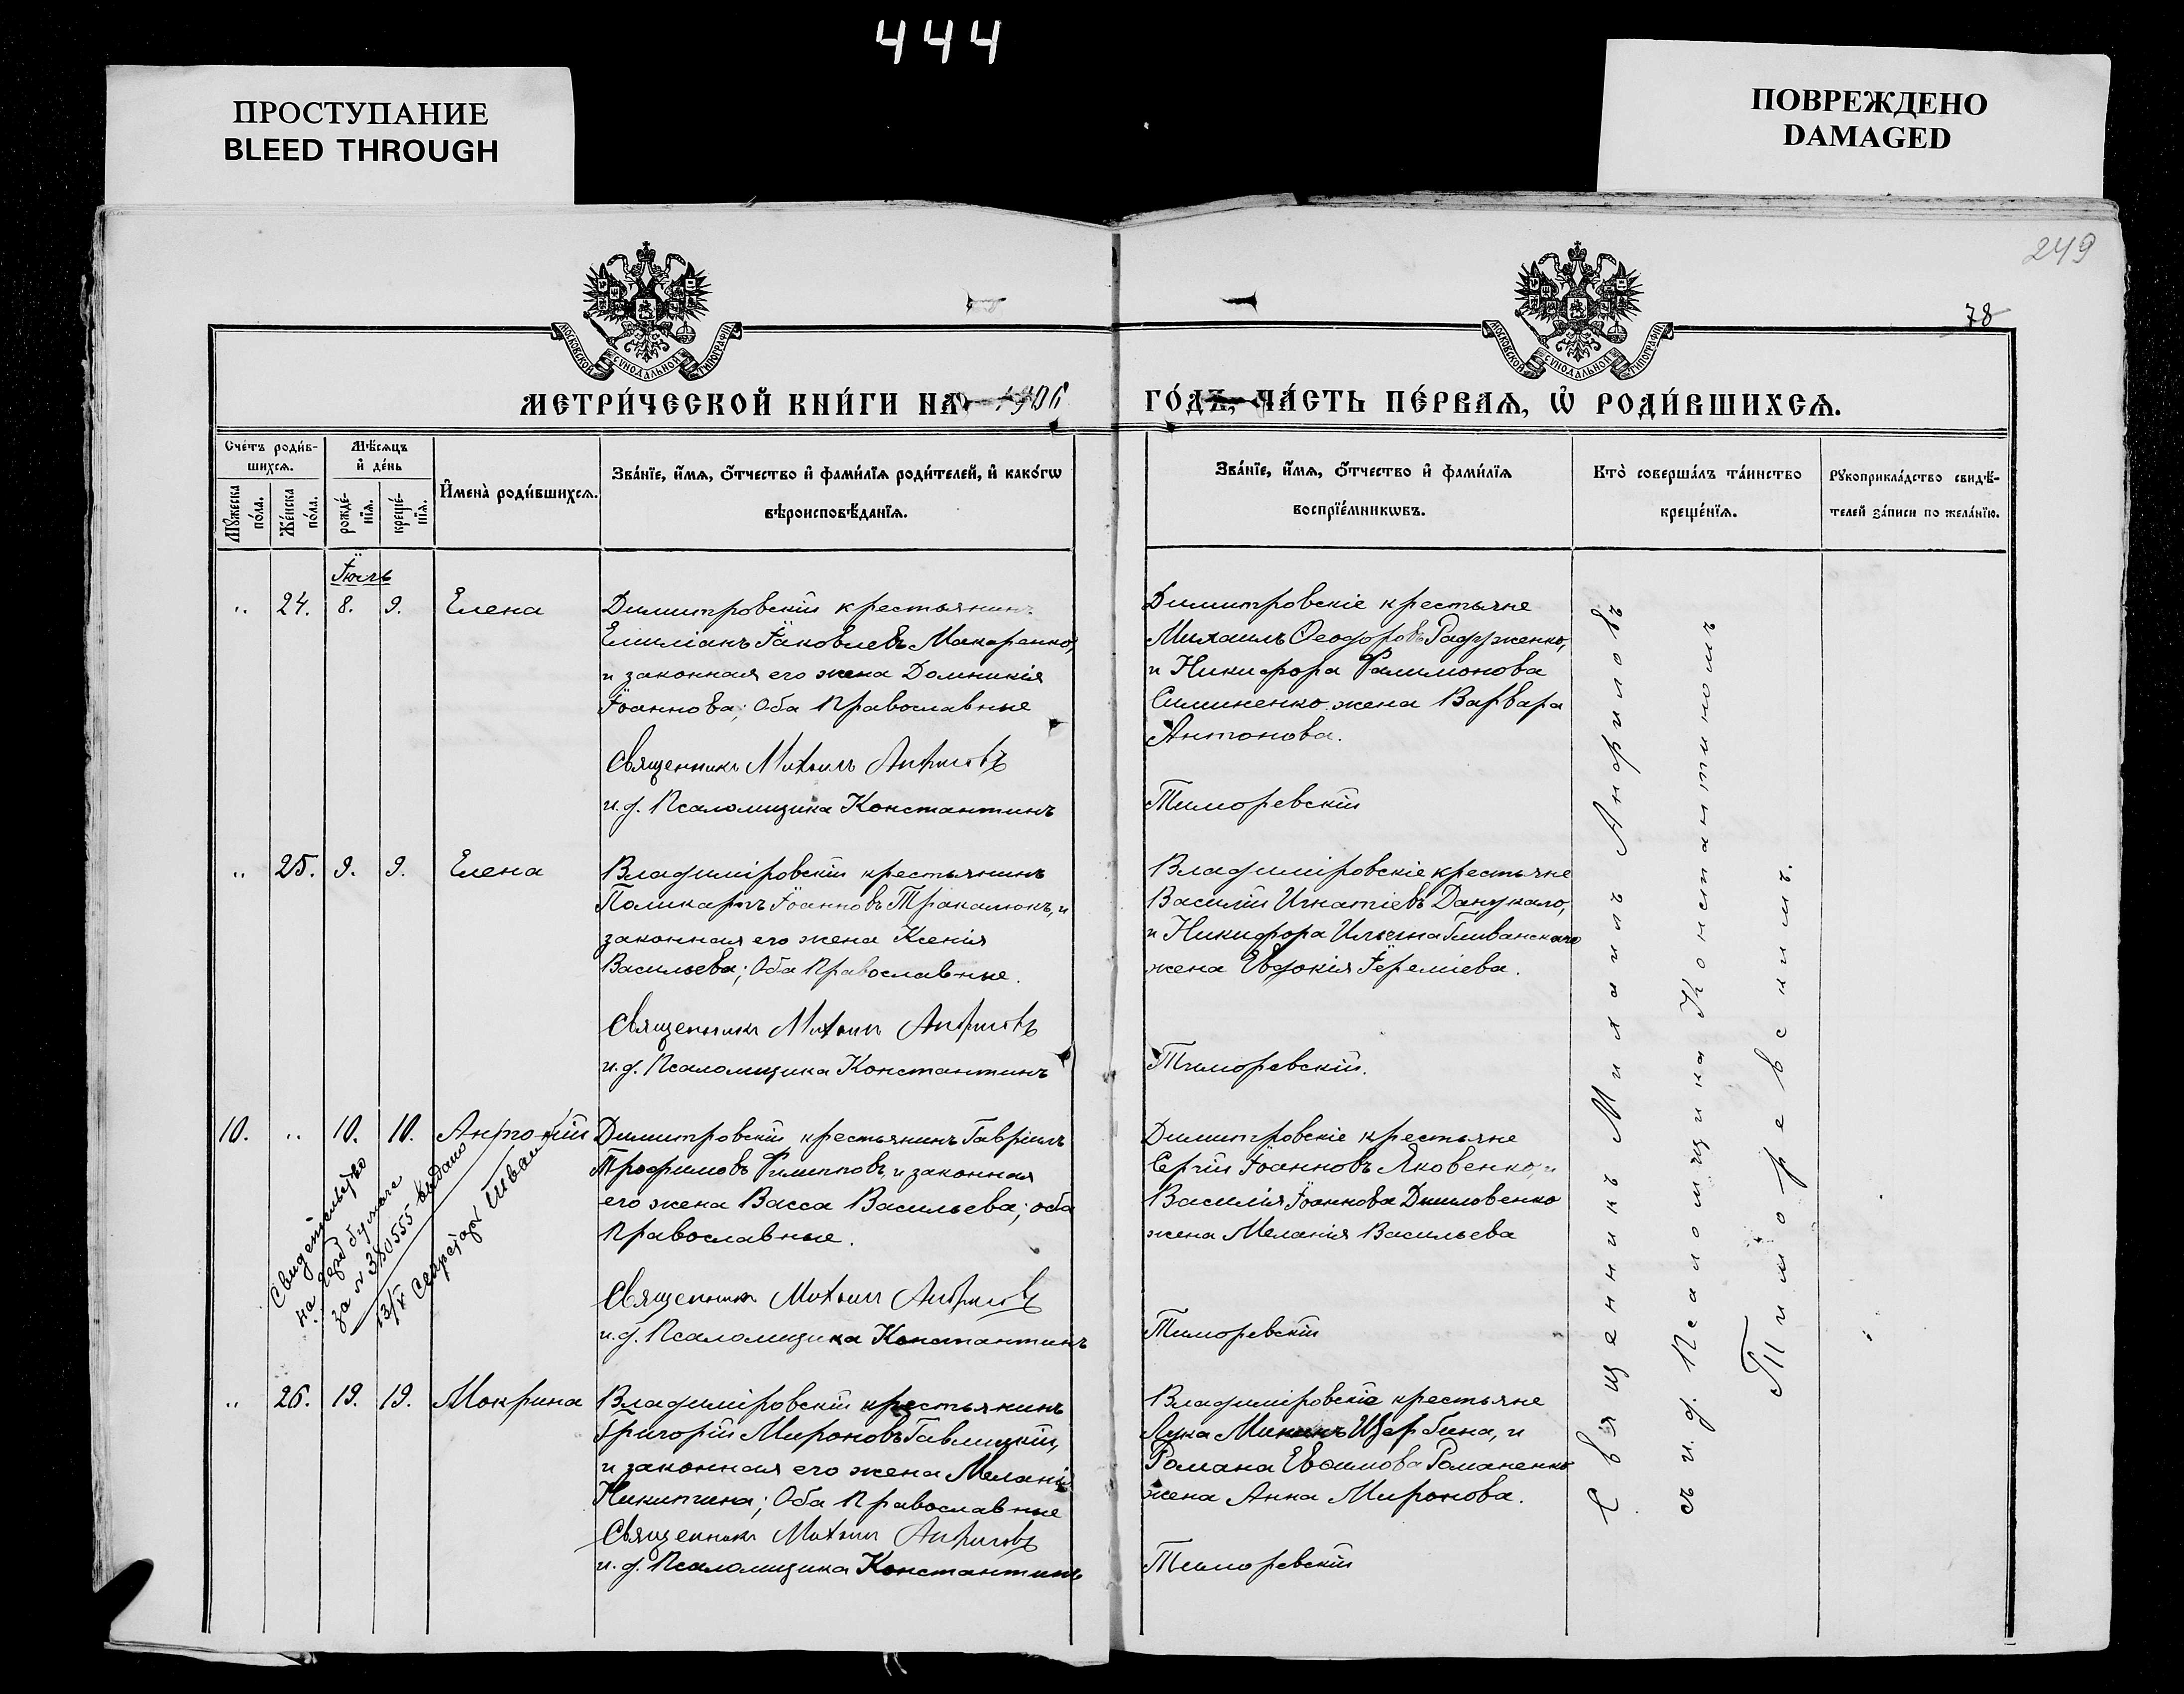 444
ПРОСТУПАНИЕ
BLEED THROUGH
ПОВРЕЖДЕНО
DAMAGED
249
78
МОСКОВСКОЙ СѴНОДАЛЬНОЙ ТИПОГРАФІИ
МОСКОВСКОЙ СѴНОДАЛЬНОЙ ТИПОГРАФІИ
МЕТРИ́ЧЕСКОЙ КНИ́ГИ НА 1906 ГО́ДЪ, ЧА́СТЬ ПЕ́РВАѦ, Ѡ҆ РОДИ́ВШИХСѦ.
Сче́тъ роди́в-
шихсѧ.
Мѣ́сѧцъ
и҆ де́нь
Мꙋ́жеска
по́ла.
Же́нска
по́ла.
рожде́-
нїѧ.
креще́-
нїѧ.
И҆мена̀ роди́вшихсѧ.
Зва́нїе, и҆́мѧ, ѻ҆́тчество и҆ фами́лїѧ роди́телей, и҆ како́гѡ
вѣроисповѣ́данїѧ.
Зва́нїе, и҆́мѧ, ѻ҆́тчество и҆ фами́лїѧ
воспрїе́мникѡвъ.
Кто̀ соверша́лъ та́инство
креще́нїѧ.
Рꙋкоприкла́дство свидѣ́-
телей за́писи по жела́нїю.
Іюль
" 24. 8. 9. Елена
Димитровскій крестьянинъ
Емиліанъ Іаковлевъ Макаренко,
и законная его жена Домникія
Іоаннова; Оба Православные
Священникъ Михаилъ Анфиловъ
и.д. Псаломщика Константинъ
Димитровскіе крестьяне
Михаилъ Ѳеодоровъ Радуженко,
и Никифора Филимонова
Симиненко жена Варвара
Антонова.
Тиморевскій
" 25. 9. 9. Елена
Владиміровскій крестьянинъ
Поликарпъ Іоанновъ Тракалюкъ, и
законная его жена Ксенія
Васильева; Оба Православные.
Священникъ Михаилъ Анфиловъ
и.д. Псаломщика Константинъ
Владиміровскіе крестьяне
Василій Игнатіевъ Данукало,
и Никифора Ильина Гливанскаго
жена Евдокія Іереміева.
Тиморевскій.
10. " 10. 10. Антоній
Димитровскій крестьянинъ Гавріилъ
Трофимовъ Филипповъ, и законная
его жена Васса Васильева; оба
Православные.
Священникъ Михаилъ Анфиловъ
и.д. Псаломщика Константинъ
Димитровскіе крестьяне
Сергій Іоанновъ Яковенко, и
Василія Іоаннова Дмиловенко
жена Меланія Васильева
Тиморевскій
Свидетельство
на герб бумаге
за № 380555 выдано
13/X Секретарь
" 26. 19. 19. Мокрина
Владиміровскій крестьянинъ
Григорій Мироновъ Гавлицкій,
и законная его жена Меланія
Никитина; Оба Православные
Священникъ Михаилъ Анфиловъ
и.д. Псаломщика Константинъ
Владиміровскіе крестьяне
Лука Мининъ Щербина, и
Романа Евфимова Романенко
жена Анна Миронова.
Тиморевскій
Священникъ Михаилъ Анфиловъ
съ и.д. Псаломщика Константиномъ
Тиморевскимъ.